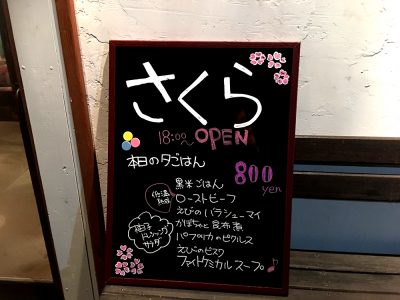 さくら
18:00〜 OPEN
本日の夕ごはん
800 yen
黒米ごはん
低温熟成 ローストビーフ
えびのバラシューマイ
かぼちゃと昆布煮
パプリカのピクルス
ドレッシング サラダ
えびのビスク
ファイトケミカルスープ